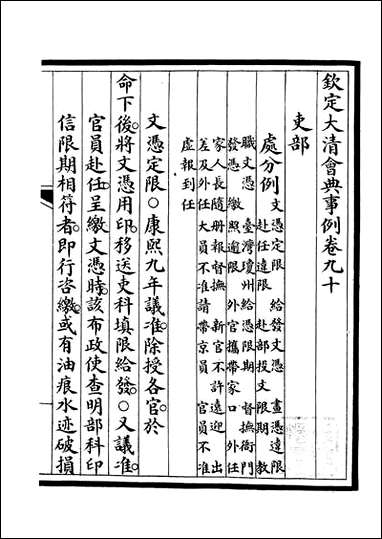 欽定大清會典事例卷九十
吏部
處分例 文憑定限 給發文憑 畫憑違限
赴任違限 赴部投文限期 教
職文憑 臺灣瓊州給憑限期 督撫衙門
發憑 繳照逾限 外官攜帶家口 外任
家人長隨冊報督撫 新官不許遠迎 出
差及外任大員不准請帶京員 官員不准
虛報到任
文憑定限○康熙九年議准除授各官於
命下後將文憑用印移送吏科填限給發○又議准
官員赴任呈繳文憑時該布政使查明部科印
信限期相符者即行咨繳或有油痕水迹破損